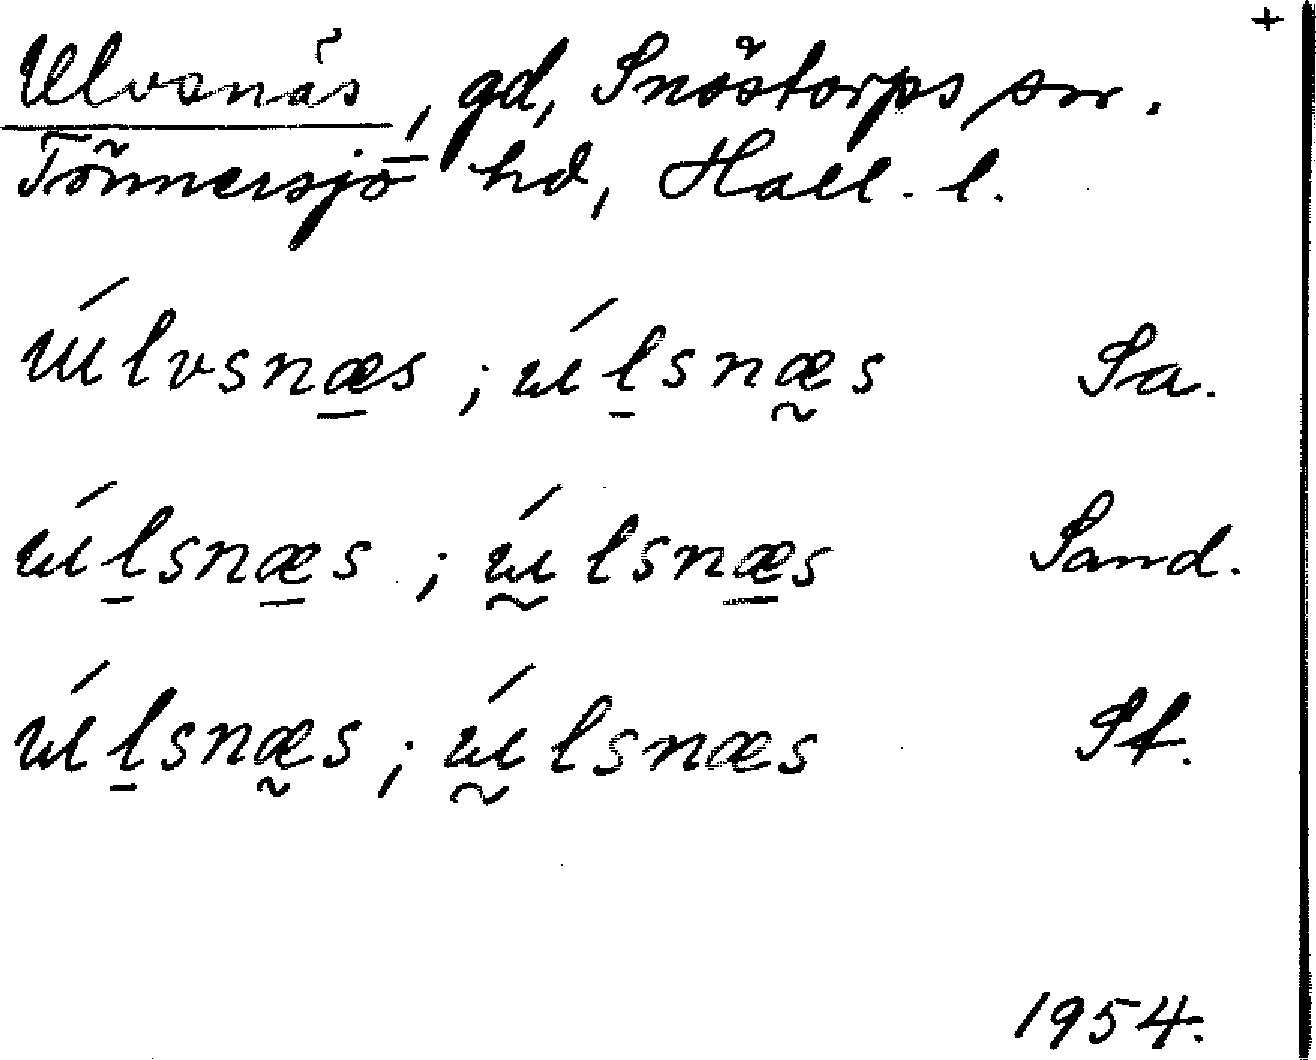 +
Ulvsnäs, gd, Snöstorps sn.
Tönnersjö hd, Hall. l.
úlvsnæ̲s ; úl̲snæ̰s Sa.
úl̲snæ̲s ; ṵ́lsnæ̲s Sand.
úl̲snæ̰s ; ṵ́lsnæs St.
1954.